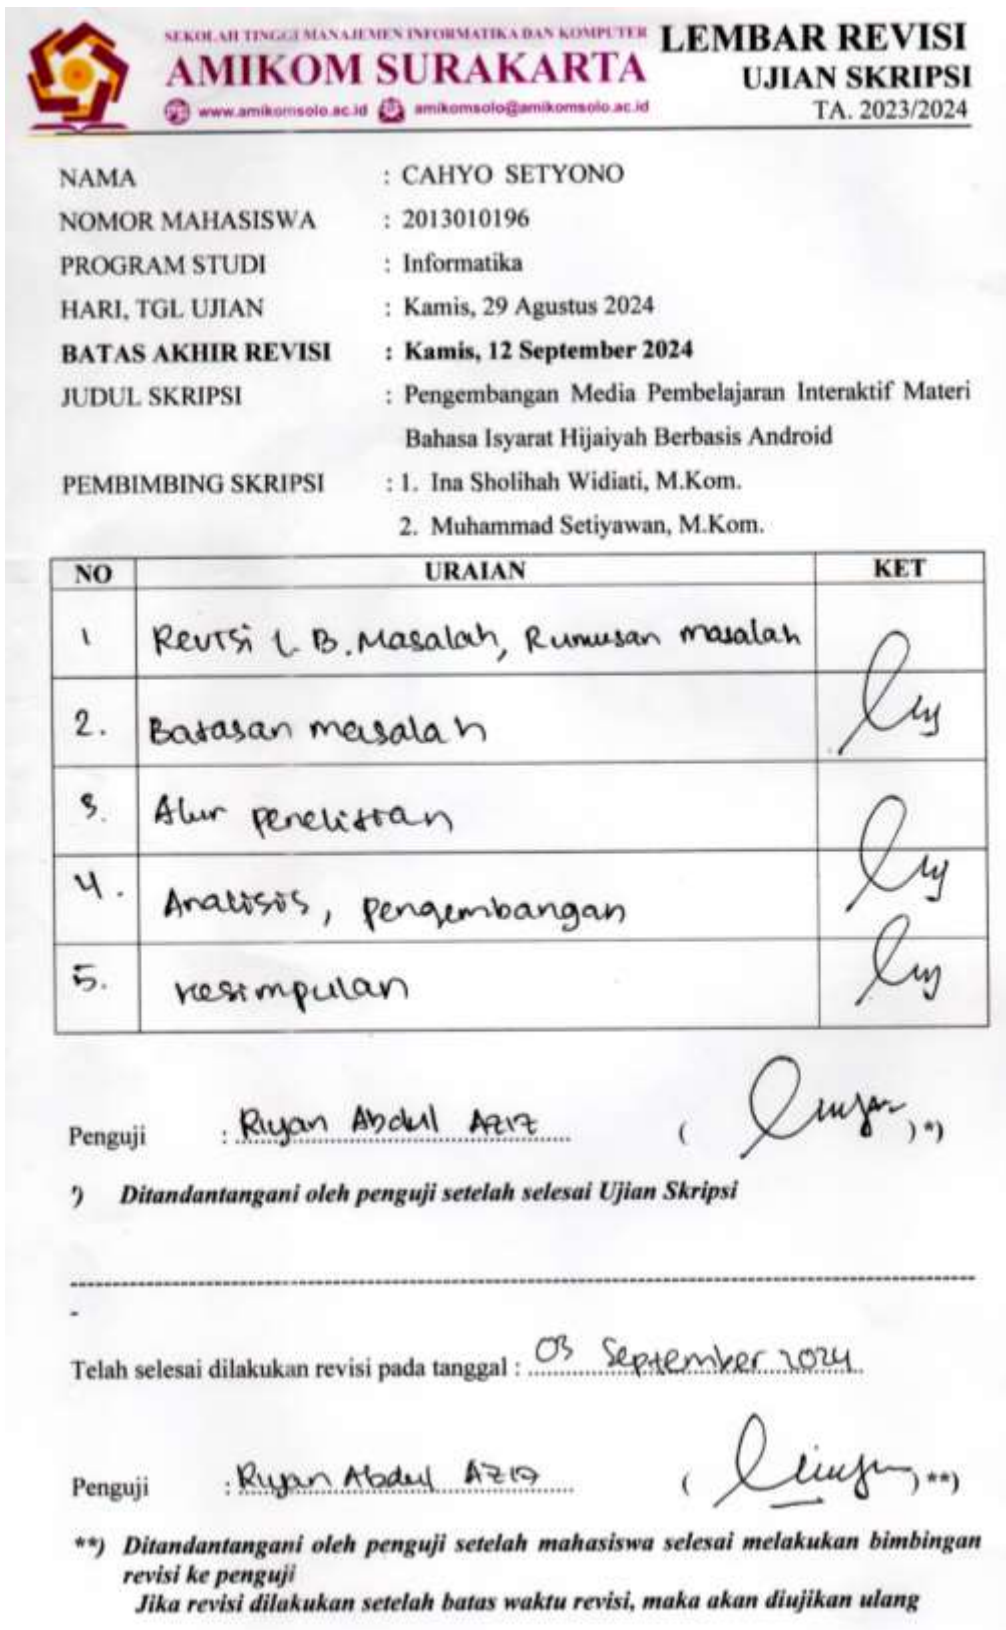 SEKOLAH TINGGI MANAJEMEN INFORMATIKA DAN KOMPUTER
AMIKOM SURAKARTA
www.amikomsolo.ac.id amikomsolo@amikomsolo.ac.id
LEMBAR REVISI
UJIAN SKRIPSI
TA. 2023/2024
NAMA : CAHYO SETYONO
NOMOR MAHASISWA : 2013010196
PROGRAM STUDI : Informatika
HARI, TGL UJIAN : Kamis, 29 Agustus 2024
BATAS AKHIR REVISI : Kamis, 12 September 2024
JUDUL SKRIPSI : Pengembangan Media Pembelajaran Interaktif Materi
Bahasa Isyarat Hijaiyah Berbasis Android
PEMBIMBING SKRIPSI : 1. Ina Sholihah Widiati, M.Kom.
2. Muhammad Setiyawan, M.Kom.
NO URAIAN KET
1 Revisi L. B. Masalah, Rumusan masalah
2. Batasan masalah
3. Alur penelitian
4. Analisis, pengembangan
5. kesimpulan
Penguji : Riyan Abdul Aziz ( )*)
*) Ditandantangani oleh penguji setelah selesai Ujian Skripsi
-
Telah selesai dilakukan revisi pada tanggal : 03 September 2024
Penguji : Riyan Abdul Aziz ( )**)
**) Ditandantangani oleh penguji setelah mahasiswa selesai melakukan bimbingan
revisi ke penguji
Jika revisi dilakukan setelah batas waktu revisi, maka akan diujikan ulang